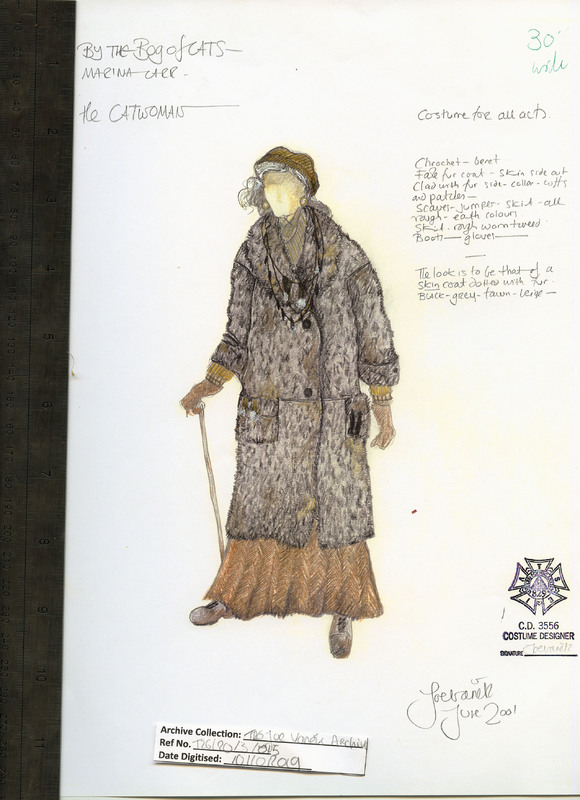 By THE Bog of CATS
MARINA CARR -
the CATWOMAN
30'
wide
Costume for all acts.
Chrochet - beret
Fake fur coat - skin side out
Clad with fur side - collar - cuffs
and patches -
Scarves - jumper - skirt - all
rough - earth colours
Skirt - rough worn tweed.
Boots - gloves
The look is to be that of a
skin coat dotted with fur.
Black - grey - fawn - beige -
C.D. 3556
COSTUME DESIGNER
SIGNATURE
June 2001
Archive Collection: Joe Vanek Archive
Ref No.
Date Digitised: 10/10/2019